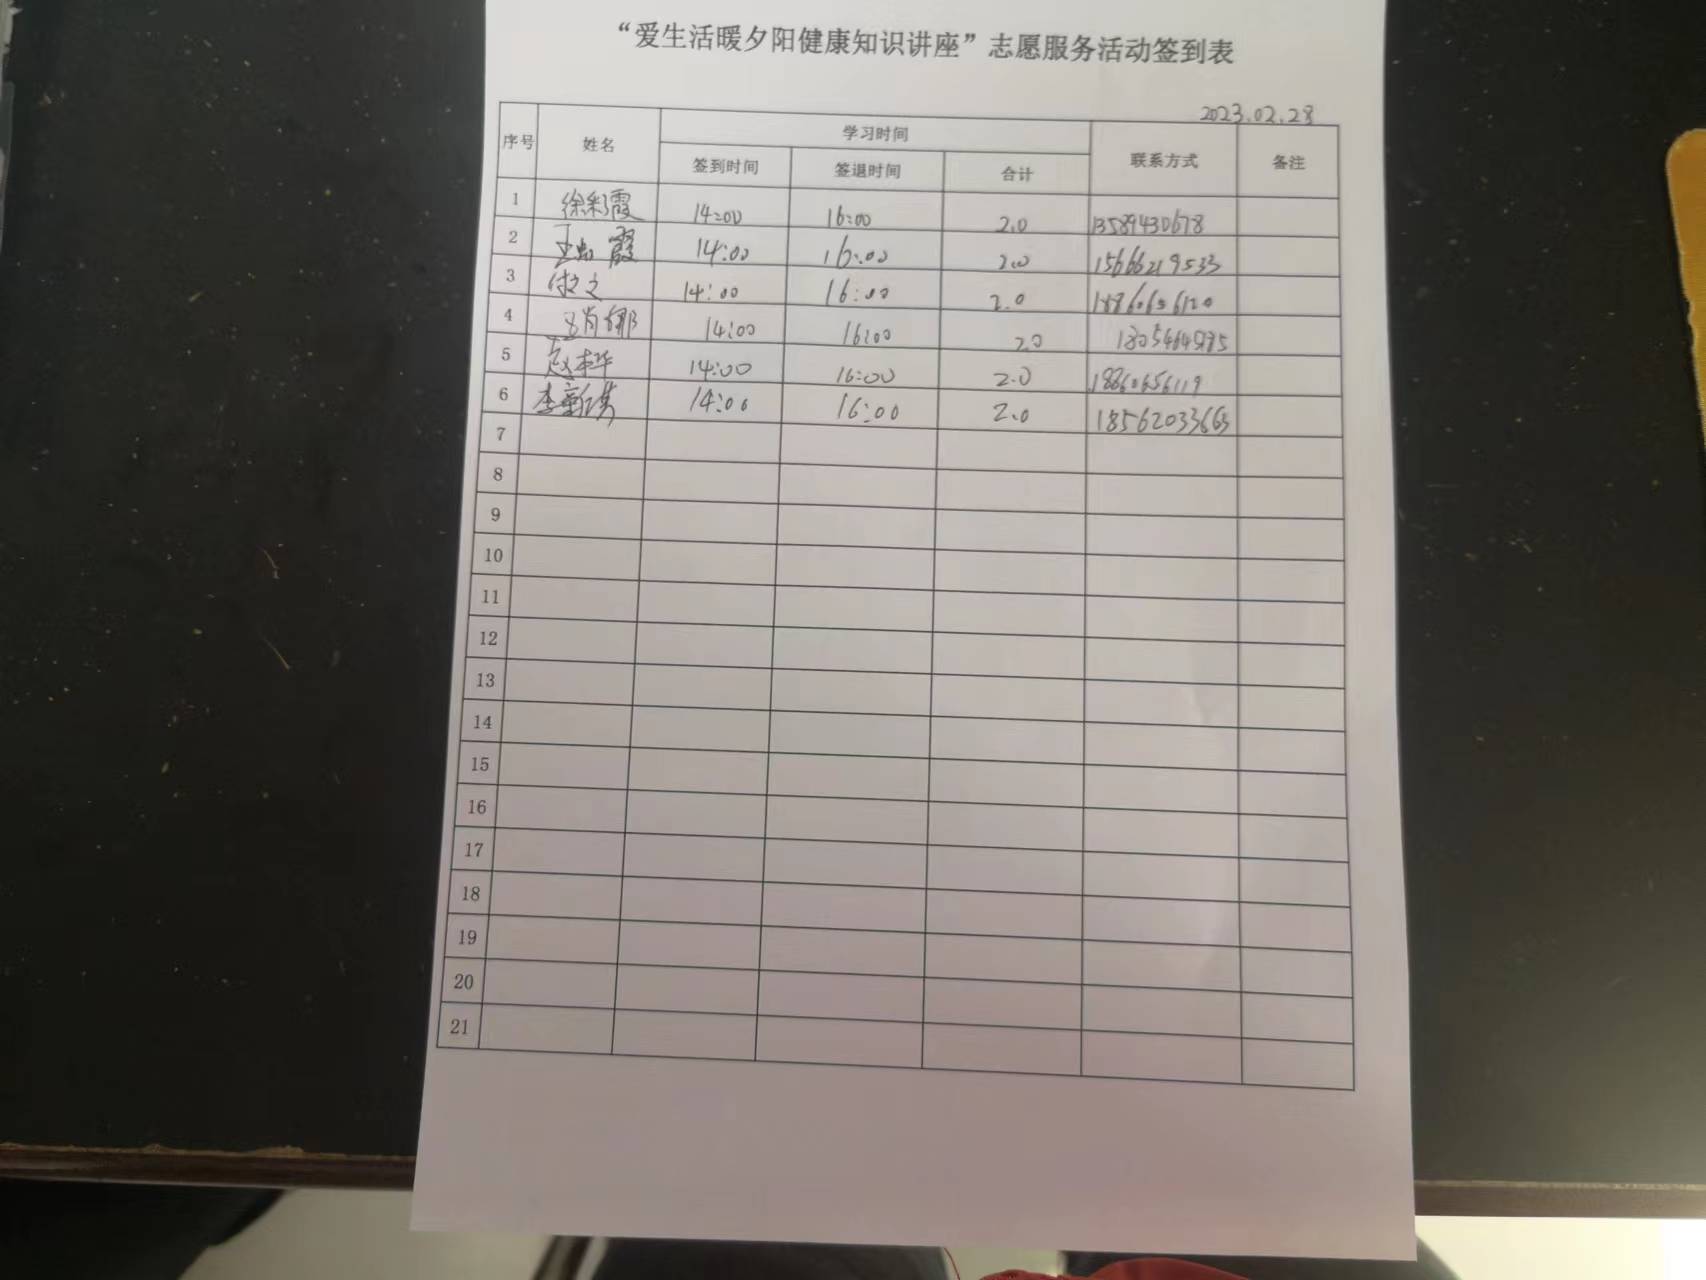 “爱生活暖夕阳健康知识讲座”志愿服务活动签到表
2023.02.28
序号 姓名 学习时间 联系方式 备注
签到时间 签退时间 合计
1 徐彩霞 14:00 16:00 2.0 13589430678
2 霞 14:00 16:00 2.0 15666219533
3 14:00 16:00 2.0 18860656120
4 14:00 16:00 2.0
5 赵桂华 14:00 16:00 2.0 18860656119
6 李新 14:00 16:00 2.0 18562033663
7
8
9
10
11
12
13
14
15
16
17
18
19
20
21